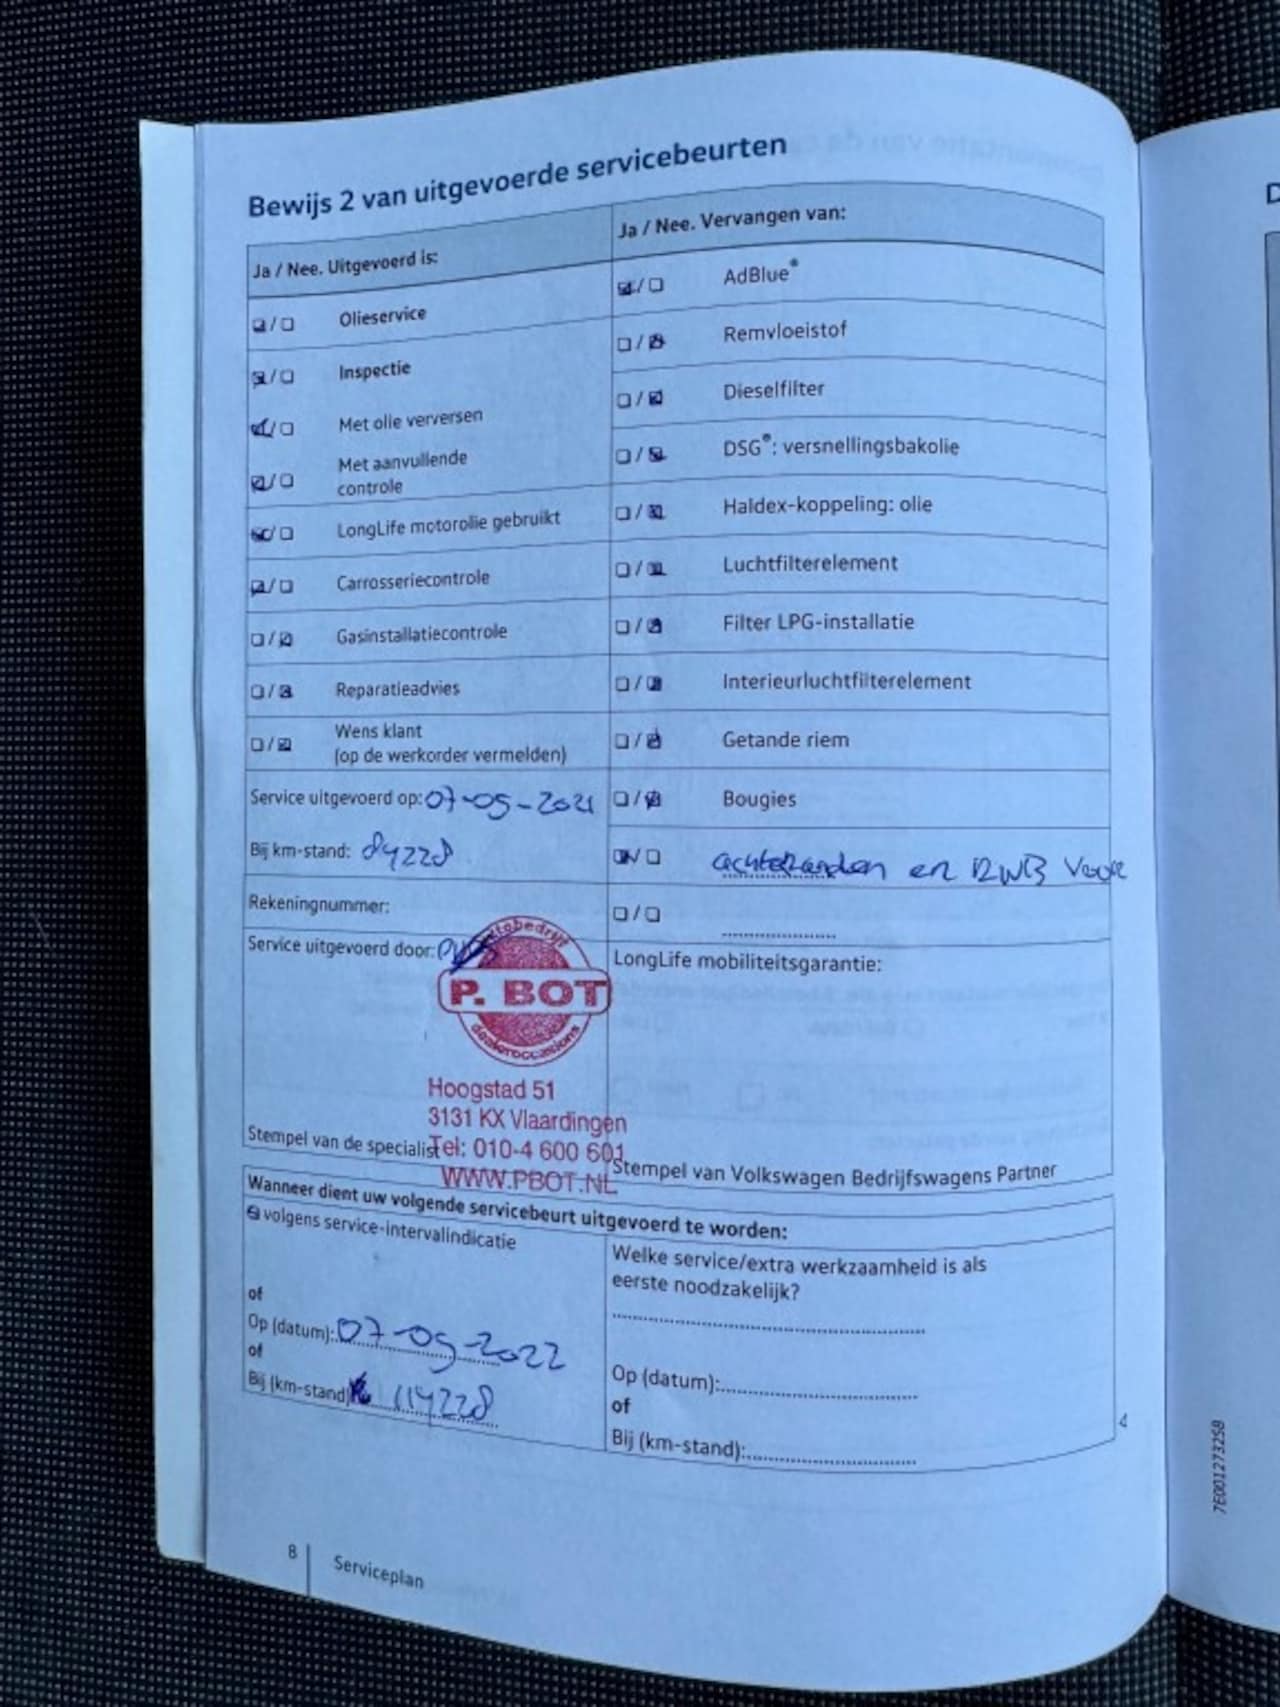 Bewijs 2 van uitgevoerde servicebeurten
Ja / Nee. Uitgevoerd is:
Olieservice
Inspectie
Met olie verversen
Met aanvullende
controle
LongLife motorolie gebruikt
Carrosseriecontrole
Gasinstallatiecontrole
Reparatieadvies
Wens klant
(op de werkorder vermelden)
Service uitgevoerd op: 07-05-2021
Bij km-stand: 84228
Rekeningnummer:
Service uitgevoerd door:
autobedrijf
P. BOT
dealeroccasions
Hoogstad 51
3131 KX Vlaardingen
Tel: 010-4 600 601
WWW.PBOT.NL
Stempel van de specialist
Ja / Nee. Vervangen van:
AdBlue®
Remvloeistof
Dieselfilter
DSG®: versnellingsbakolie
Haldex-koppeling: olie
Luchtfilterelement
Filter LPG-installatie
Interieurluchtfilterelement
Getande riem
Bougies
achterbanden en RWB voor
LongLife mobiliteitsgarantie:
Stempel van Volkswagen Bedrijfswagens Partner
Wanneer dient uw volgende servicebeurt uitgevoerd te worden:
volgens service-intervalindicatie
of
Op (datum): 07-05-2022
of
Bij (km-stand) 114228
Welke service/extra werkzaamheid is als
eerste noodzakelijk?
Op (datum):
of
Bij (km-stand):
8
Serviceplan
4
7E0012732SB
D